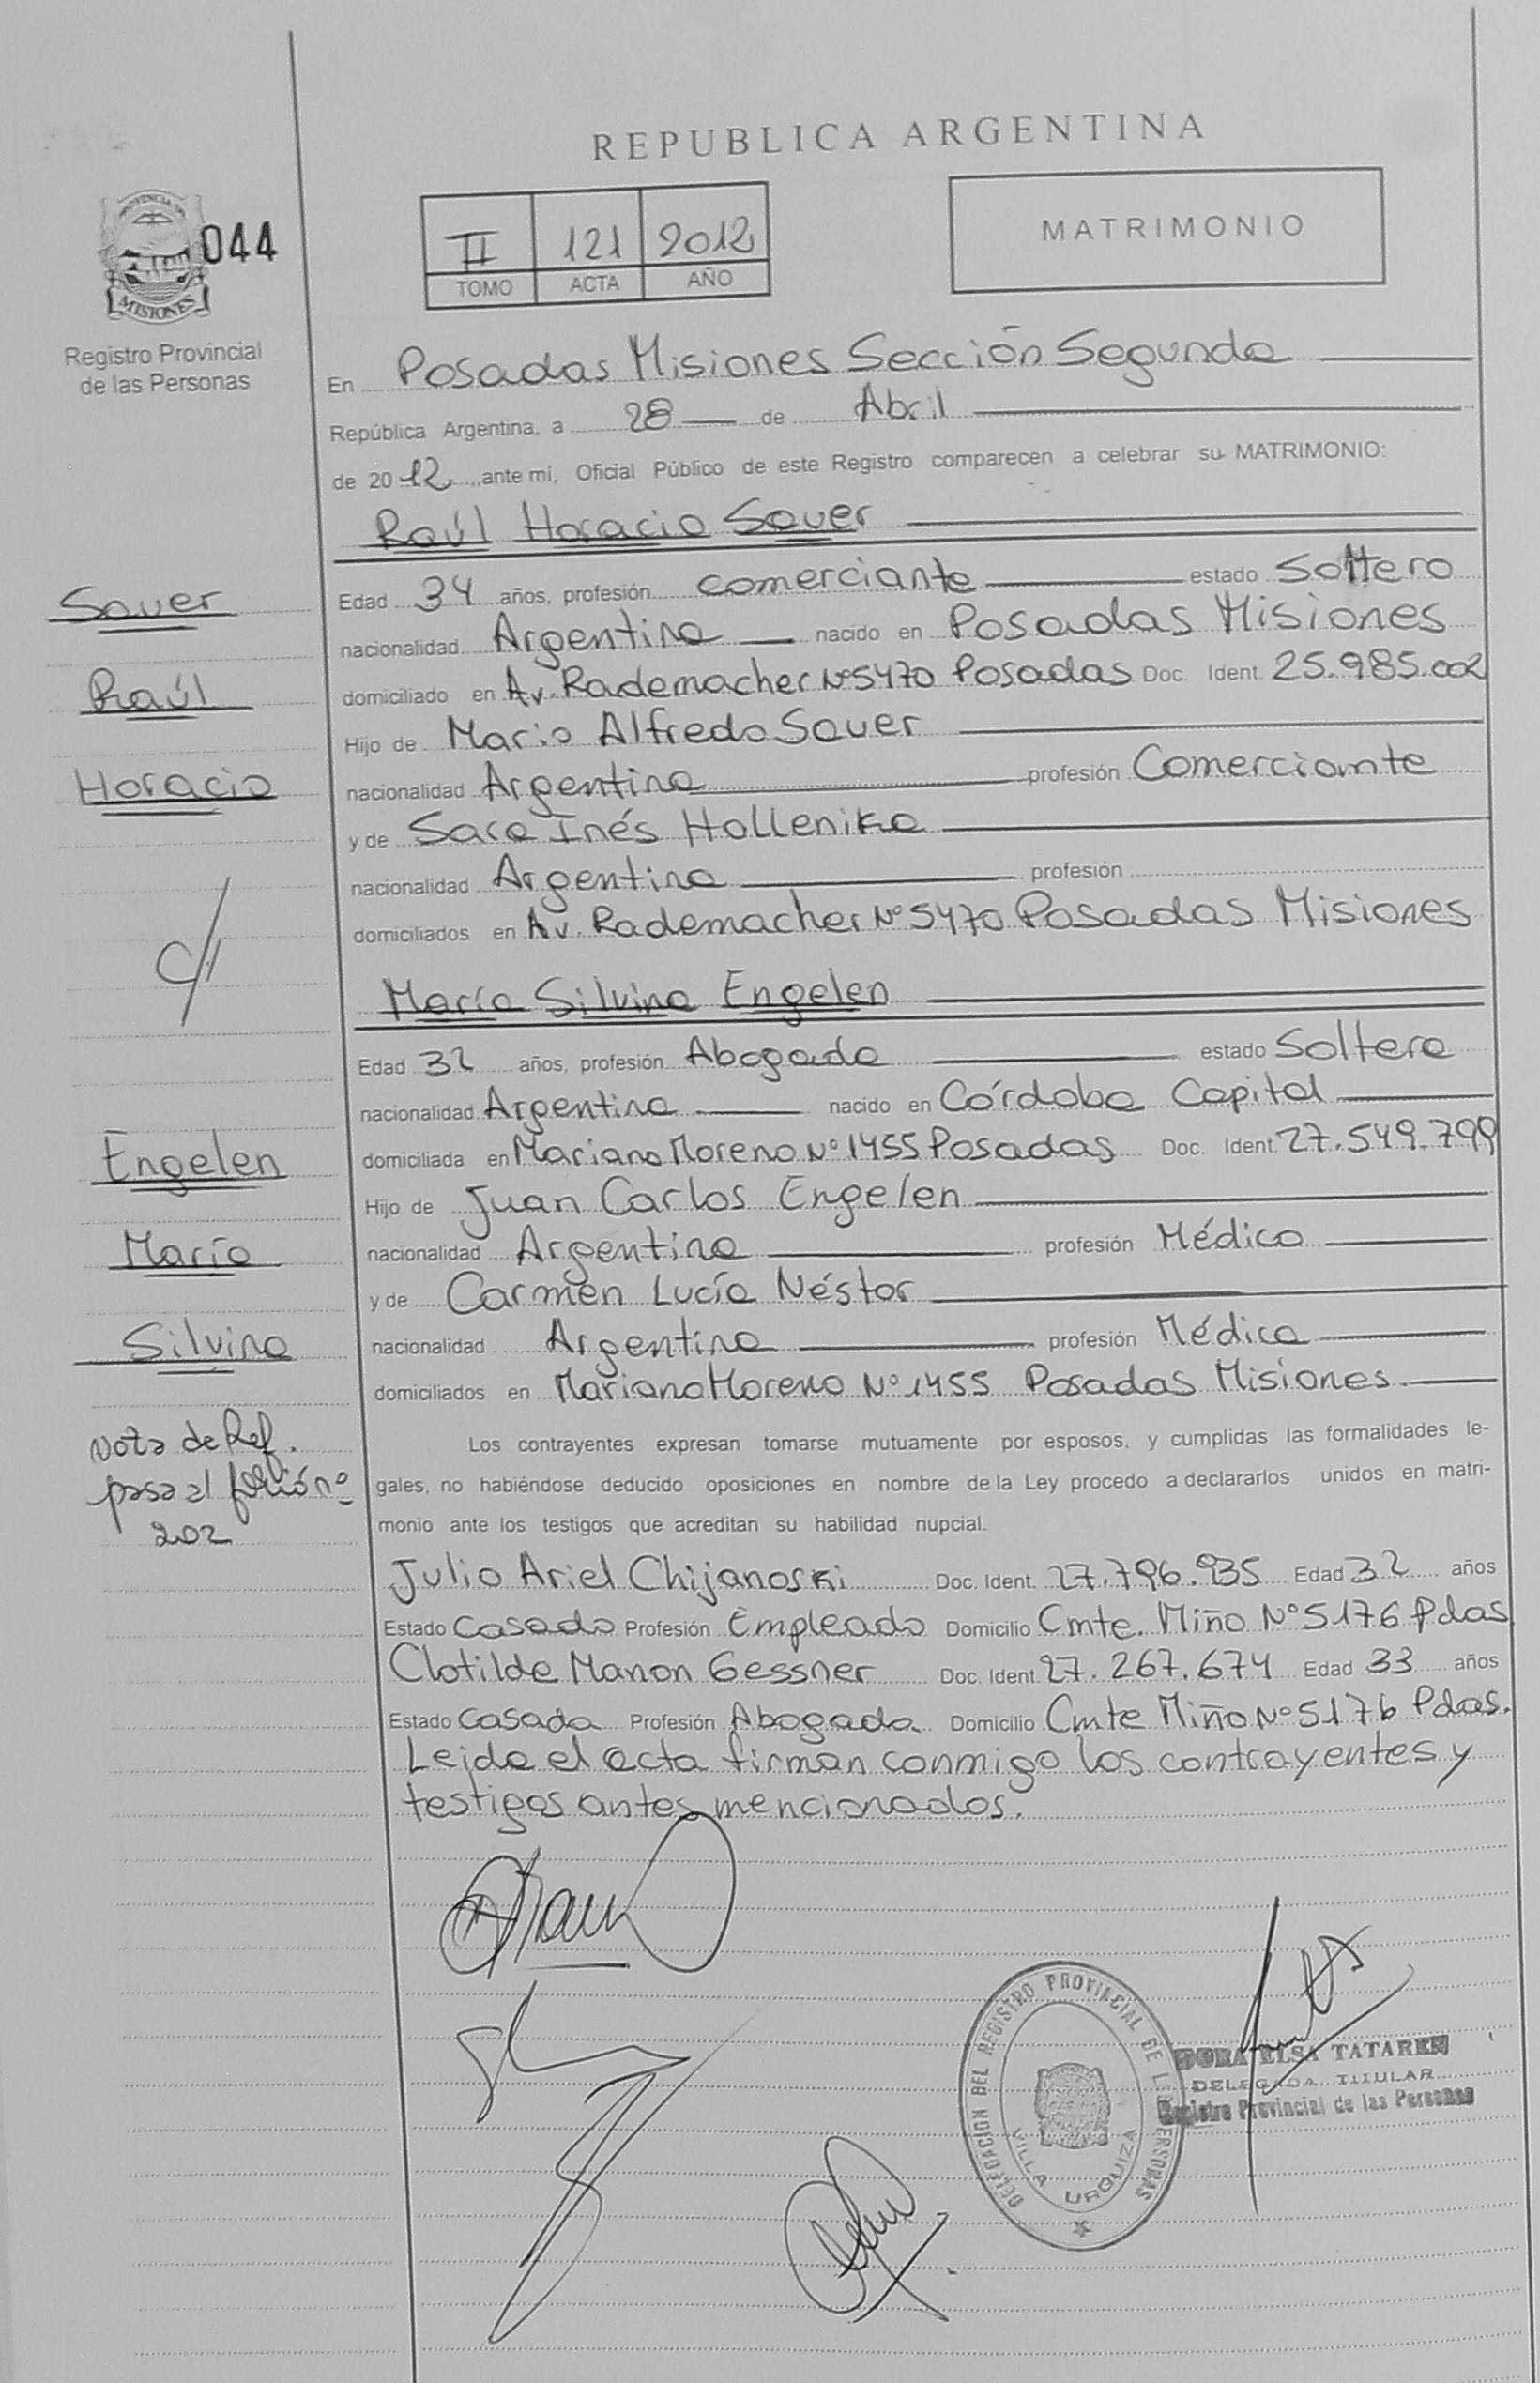 REPUBLICA ARGENTINA
PROVINCIA DE
MISIONES
044
Registro Provincial
de las Personas
II 121 2012
TOMO ACTA AÑO
MATRIMONIO
En Posadas Misiones Sección Segunda
República Argentina, a 28 de Abril
de 2012, ante mí, Oficial Público de este Registro comparecen a celebrar su MATRIMONIO:
Raúl Horacio Sauer
Edad 34 años, profesión comerciante estado Soltero
nacionalidad Argentina nacido en Posadas Misiones
domiciliado en Av. Rademacher Nº 5470 Posadas Doc. Ident. 25.985.002
Hijo de Mario Alfredo Sauer
nacionalidad Argentina profesión Comerciante
y de Sara Inés Hollenika
nacionalidad Argentina profesión
domiciliados en Av. Rademacher Nº 5470 Posadas Misiones
María Silvina Engelen
Edad 32 años, profesión Abogada estado Soltera
nacionalidad Argentina nacido en Córdoba Capital
domiciliada en Mariano Moreno Nº 1455 Posadas Doc. Ident. 27.549.799
Hijo de Juan Carlos Engelen
nacionalidad Argentina profesión Médico
y de Carmen Lucía Néstor
nacionalidad Argentina profesión Médica
domiciliados en Mariano Moreno Nº 1455 Posadas Misiones
Los contrayentes expresan tomarse mutuamente por esposos, y cumplidas las formalidades le-
gales, no habiéndose deducido oposiciones en nombre de la Ley procedo a declararlos unidos en matri-
monio ante los testigos que acreditan su habilidad nupcial.
Julio Ariel Chijanoski Doc. Ident. 27.796.935 Edad 32 años
Estado Casado Profesión Empleado Domicilio Cmte. Miño Nº 5176 Pdas
Clotilde Manon Gessner Doc. Ident. 27.267.674 Edad 33 años
Estado Casada Profesión Abogada Domicilio Cmte Miño Nº 5176 Pdas.
Leída el acta firman conmigo los contrayentes y
testigos antes mencionados.
Sauer
Raúl
Horacio
Engelen
María
Silvina
Nota de Ref.
pasa al folio nº
202
DELEGACION DEL REGISTRO PROVINCIAL DE LAS PERSONAS
VILLA URQUIZA
DORA ELSA TATAREN
DELEGADA TITULAR
Registro Provincial de las Personas